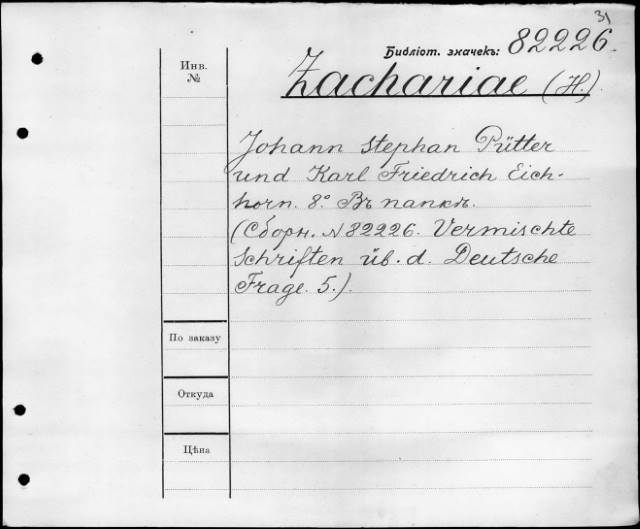 31
Библіот. значекъ: 82226.
Инв.
№
Zachariae (H.)
Johann Stephan Pütter
und Karl Friedrich Eich-
horn. 8.° Въ папкѣ.
(Сборн. № 82226. Vermischte
Schriften üb. d. Deutsche
Frage. 5.).
По заказу
Откуда
Цѣна